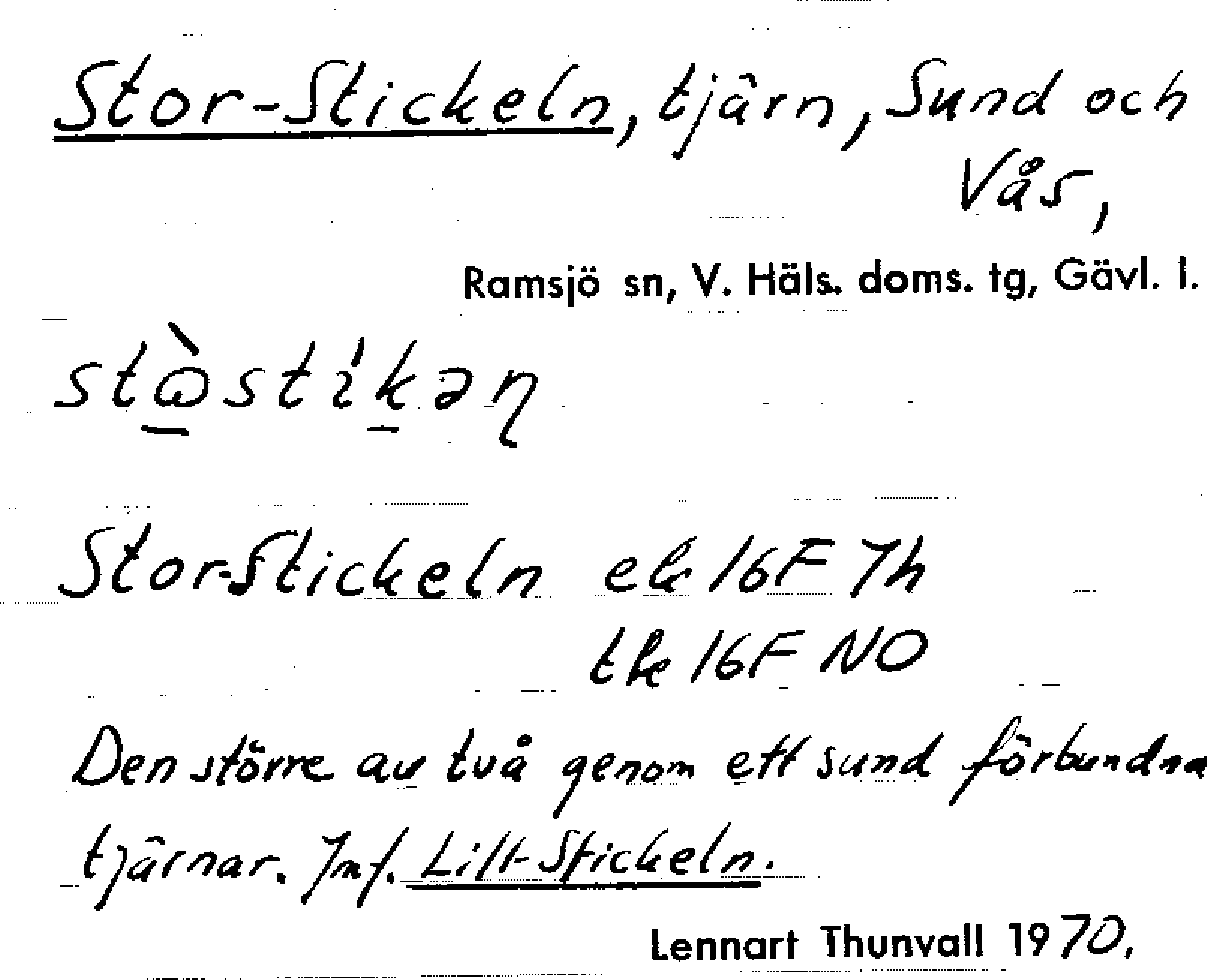 Stor-Stickeln, tjärn, Sund och
Vås,
Ramsjö sn, V. Häls. doms. tg, Gävl. l.
stɷ̀stíkəɳ
Stor-Stickeln ek 16F 7h
tk 16F NO
Den större av två genom ett sund förbundna
tjärnar. Jmf. Lill-Stickeln.
Lennart Thunvall 1970,